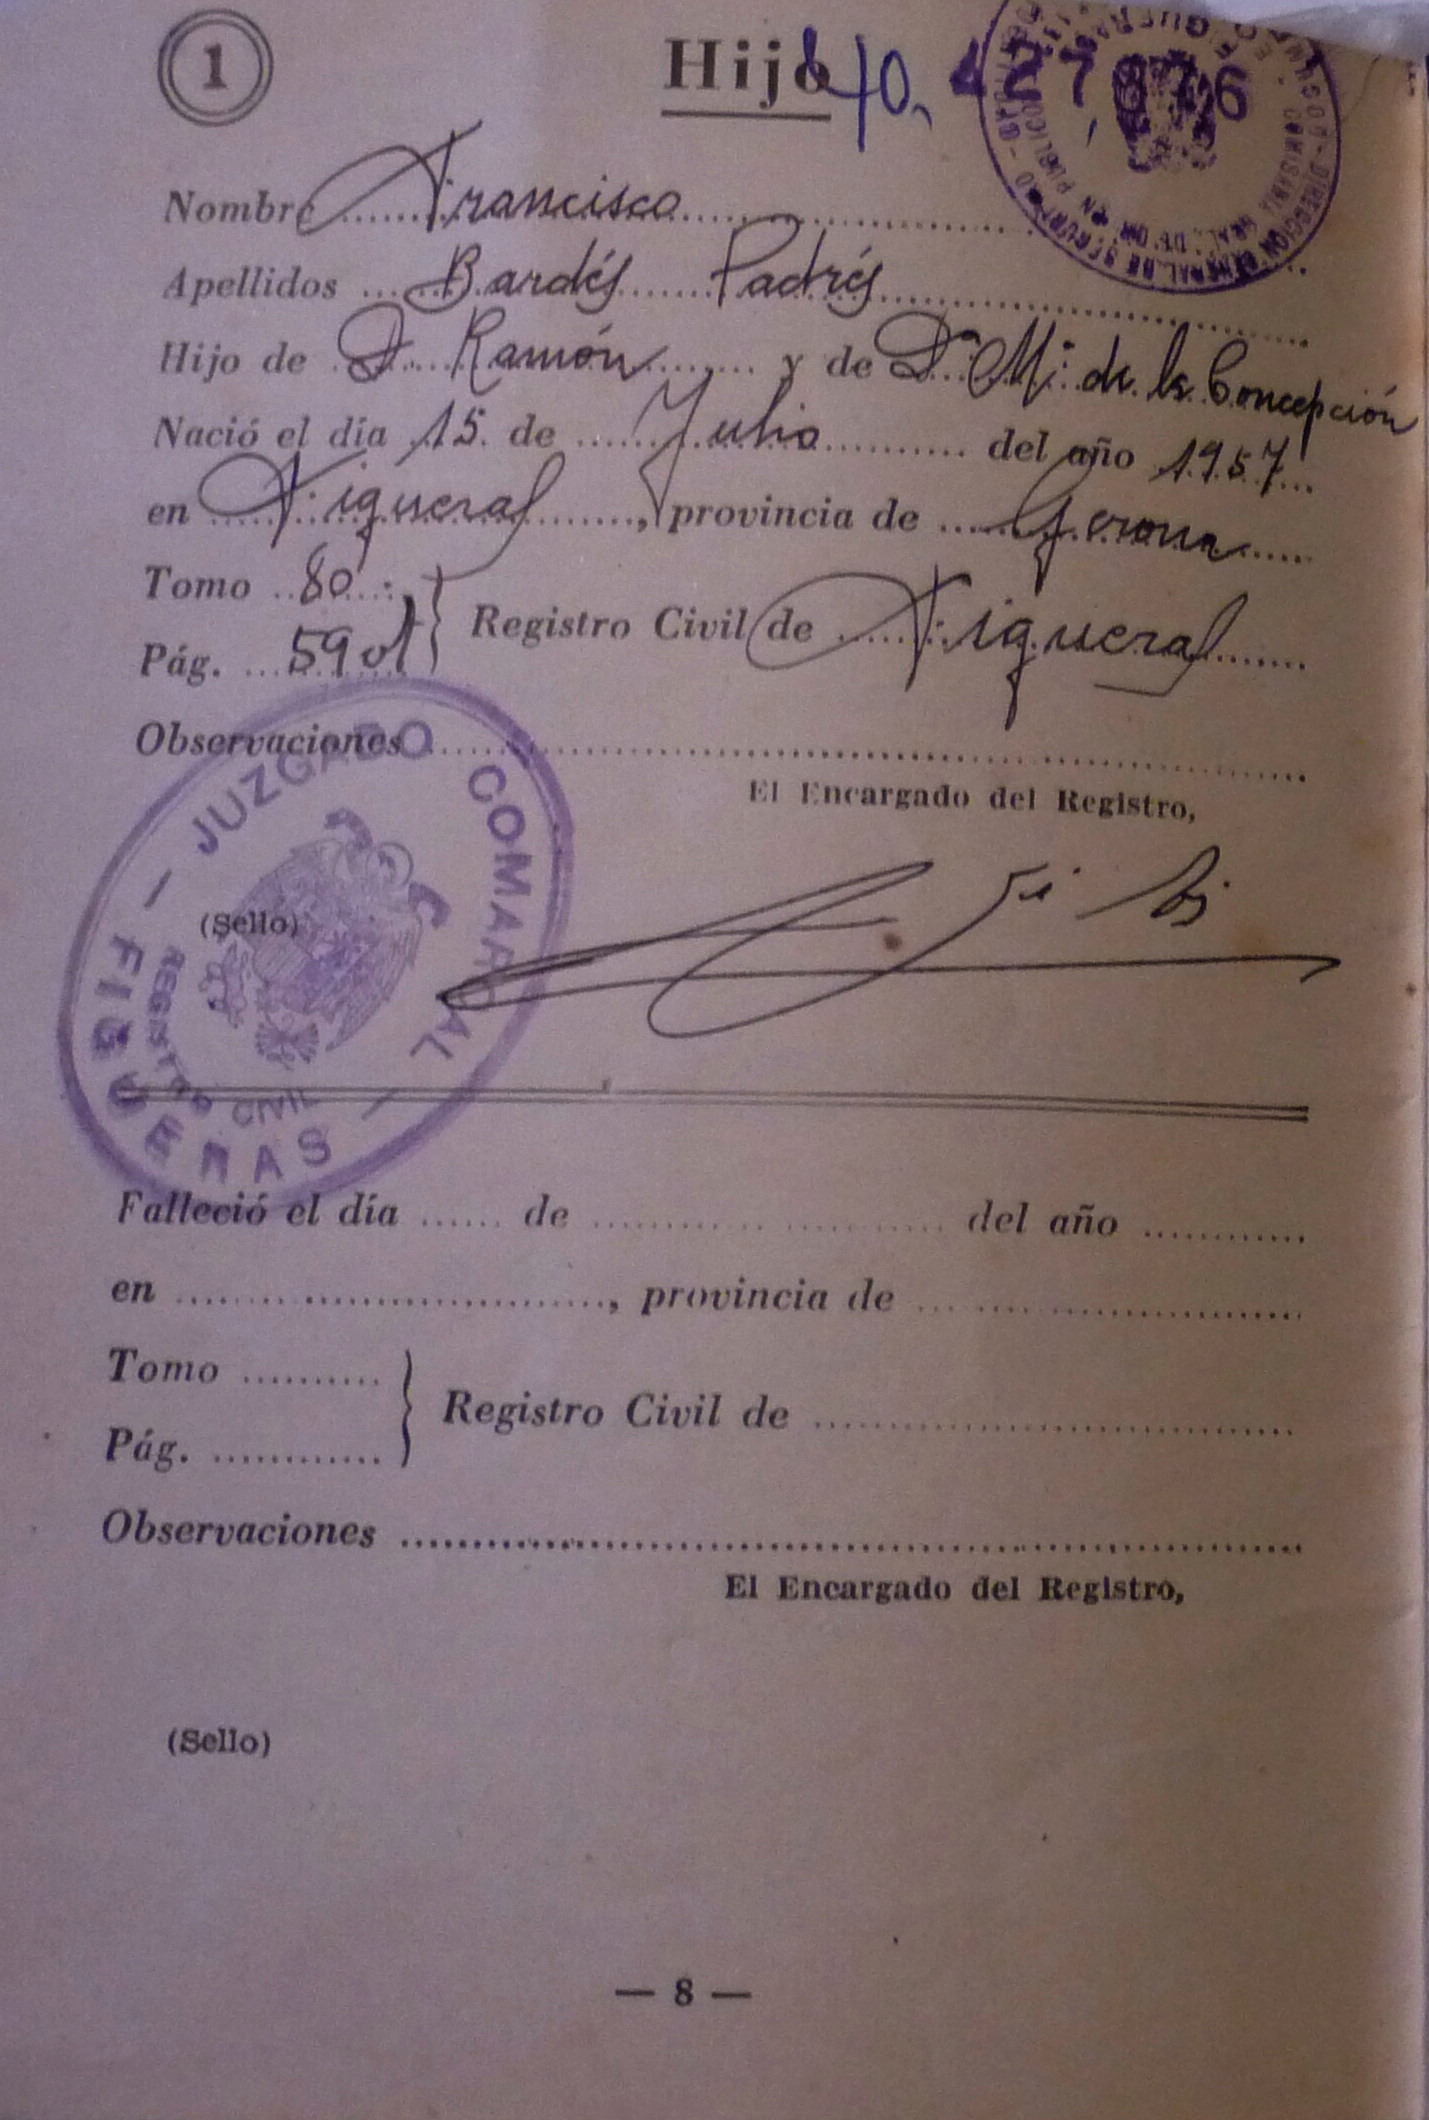 1
Hijo
40.427076
Nombre Francisco
Apellidos Bardés Padrés
Hijo de D. Ramón y de Dª Mª de la Concepción
Nació el día 15 de Julio del año 1957
en Figueras, provincia de Gerona
Tomo 80
Pág. 59 vt
Registro Civil de Figueras
Observaciones
El Encargado del Registro,
(Sello)
JUZGADO COMARCAL
FIGUERAS
REGISTRO CIVIL
Falleció el día de del año
en , provincia de
Tomo
Pág.
Registro Civil de
Observaciones
El Encargado del Registro,
(Sello)
— 8 —